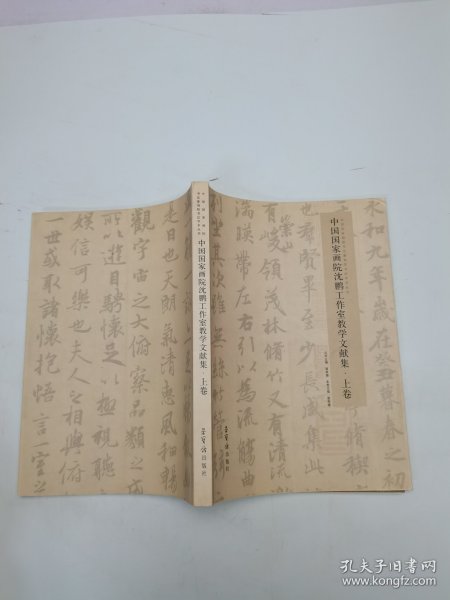 中国国家画院沈鹏工作室教学文献集·上卷
荣宝斋出版社
和九年歲在癸丑暮春之初
脩禊事
也羣賢畢至少長咸集此
有崇山峻領茂林脩竹又有清流激
湍暎帶左右引以為流觴曲
列坐其次雖無絲竹管弦
中国国家画院沈鹏工作室教学文献集·上卷
荣宝斋出版社
是日也天朗氣清惠風和暢
觀宇宙之大俯察品類之盛
所以遊目騁懷足以極視聽
娛信可樂也夫人之相與俯
一世或取諸懷抱悟言一室之
孔夫子旧书网
www.kongfz.com